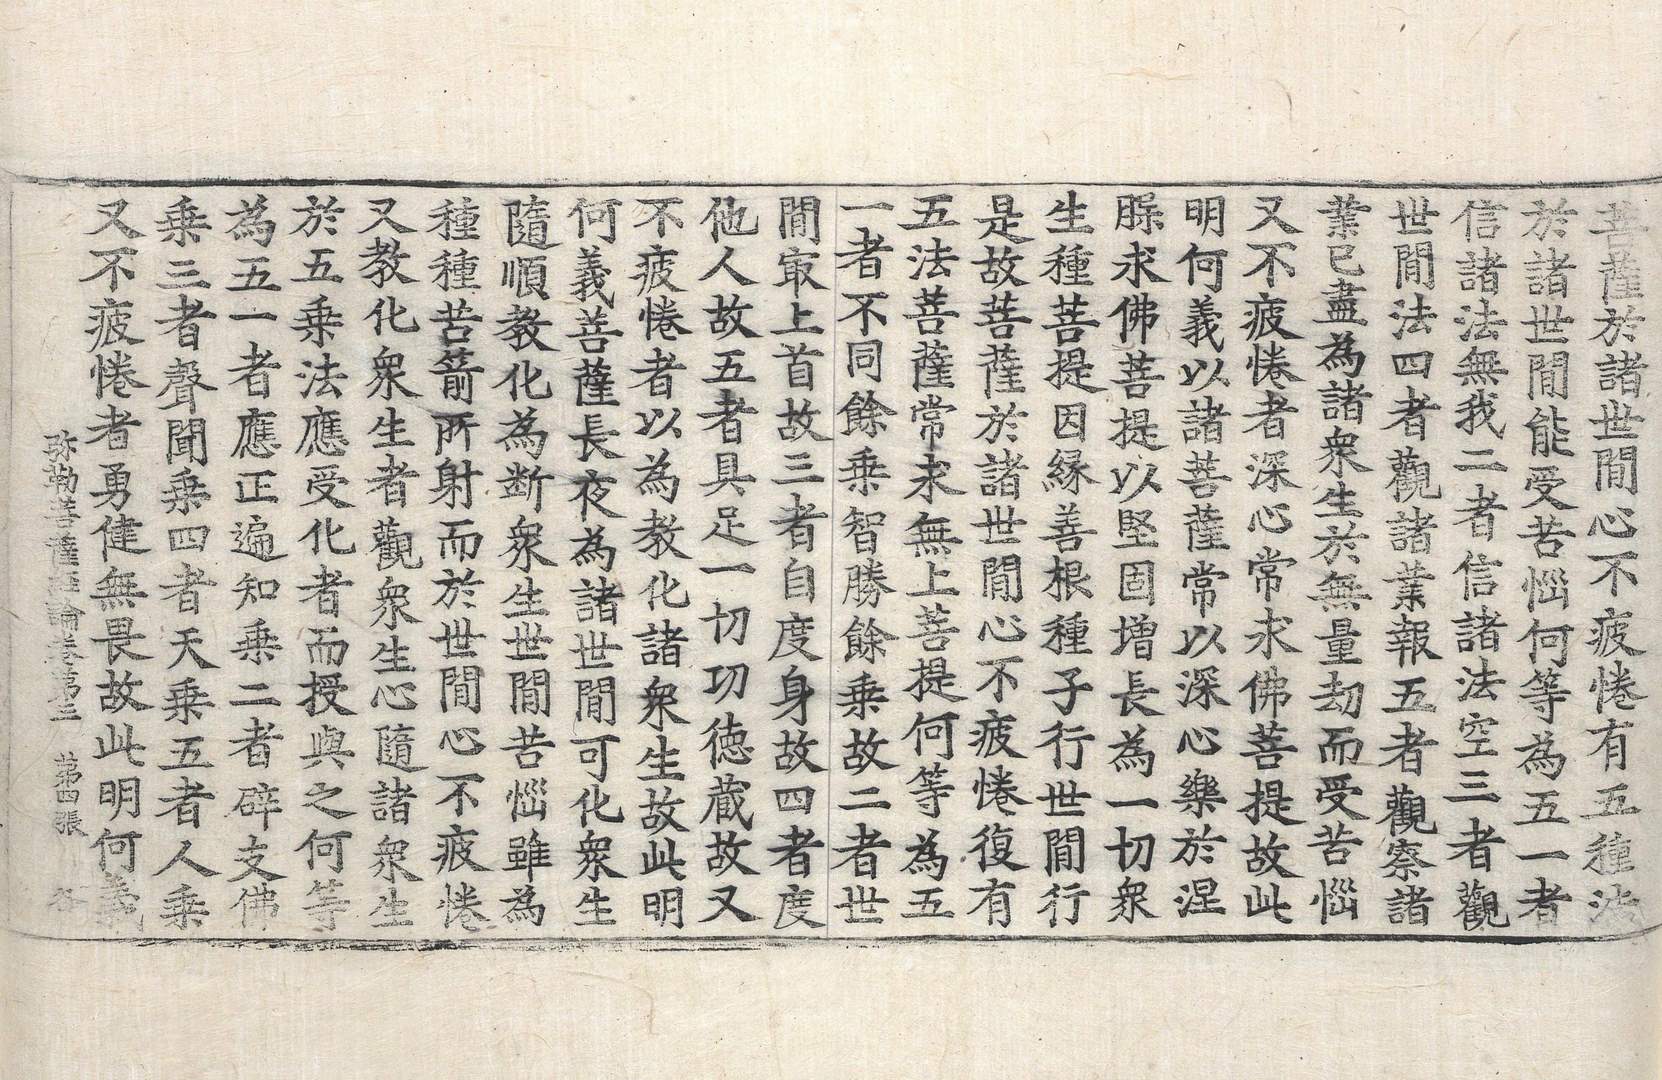 菩薩於諸世間心不疲惓有五種法
於諸世間能受苦惱何等為五一者
信諸法無我二者信諸法空三者觀
世間法四者觀諸業報五者觀察諸
業已盡為諸衆生於無量劫而受苦惱
又不疲惓者深心常求佛菩提故此
明何義以諸菩薩常以深心樂於涅
槃求佛菩提以堅固增長為一切衆
生種菩提因緣善根種子行世間行
是故菩薩於諸世間心不疲惓復有
五法菩薩常求無上菩提何等為五
一者不同餘乗智勝餘乗故二者世
間㝡上首故三者自度身故四者度
他人故五者具足一切功徳蔵故又
不疲惓者以為教化諸衆生故此明
何義菩薩長夜為諸世間可化衆生
隨順教化為断衆生世間苦惱雖為
種種苦箭所射而於世間心不疲惓
又教化衆生者觀衆生心隨諸衆生
於五乗法應受化者而授與之何等
為五一者應正遍知乗二者辟支佛
乗三者聲聞乗四者天乗五者人乗
又不疲惓者勇健無畏故此明何義
弥勒菩薩經論卷第三 第四張